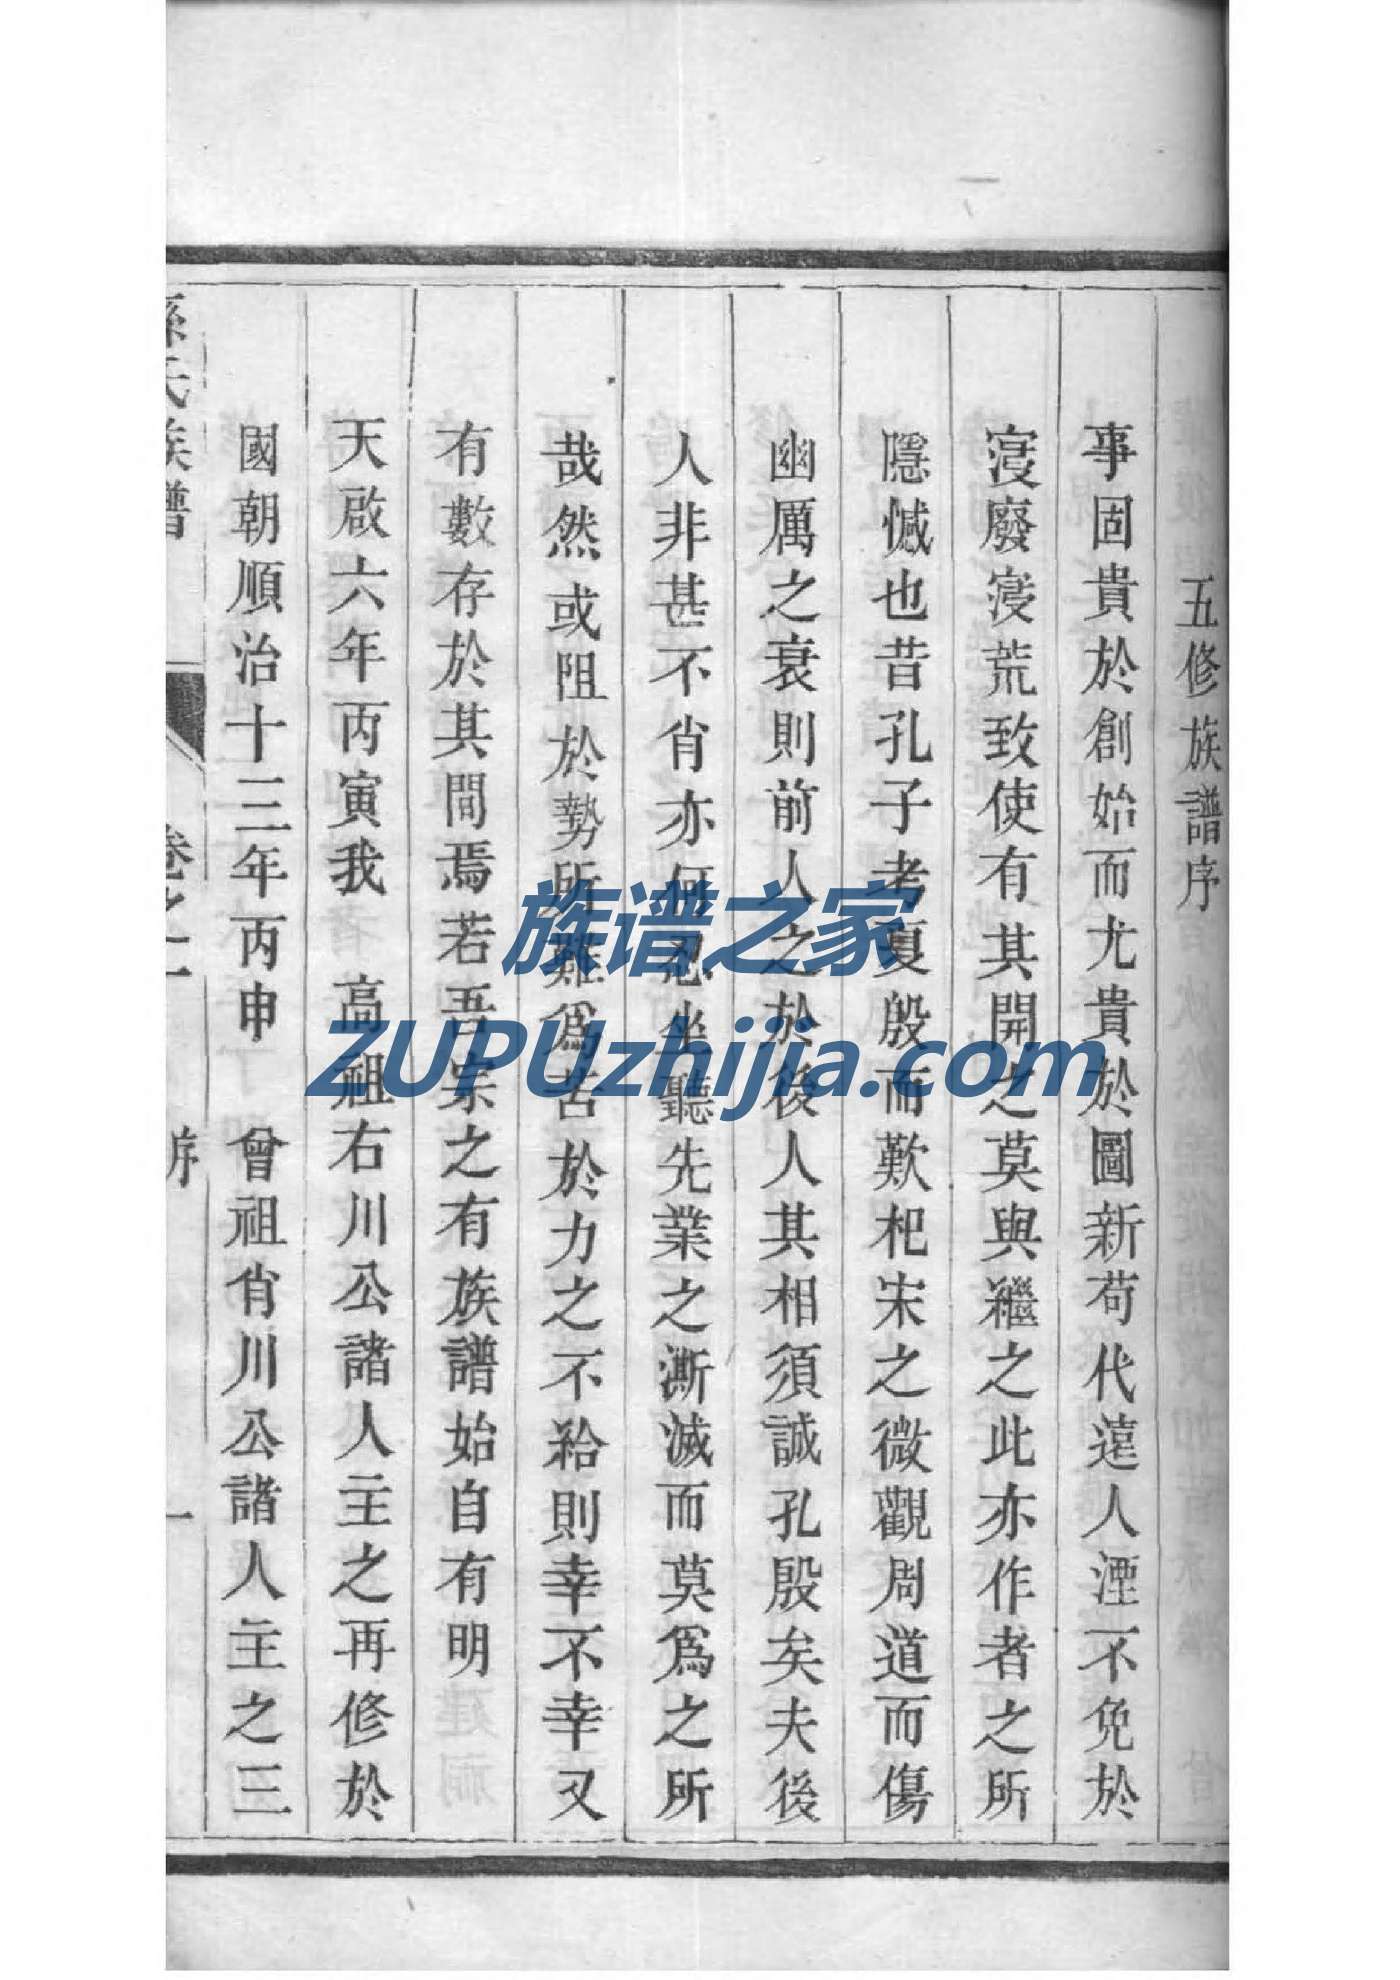 五修族譜序
事固貴於創始而尤貴於圖新苟代遠人湮不免於
寖廢寖荒致使有其開之莫與繼之此亦作者之所
隱憾也昔孔子考夏殷而歎杞宋之微觀周道而傷
幽厲之衰則前人之於後人其相須誠孔殷矣夫後
人非甚不肖亦何忍坐聽先業之澌滅而莫爲之所
哉然或阻於勢所難爲苦於力之不給則幸不幸又
有數存於其間焉若吾宗之有族譜始自有明
天啟六年丙寅我 高祖右川公諸人主之再修於
國朝順治十三年丙申 曾祖肖川公諧人主之三
孫氏族譜 卷之一 序 一
族谱之家
ZUPUzhijia.com